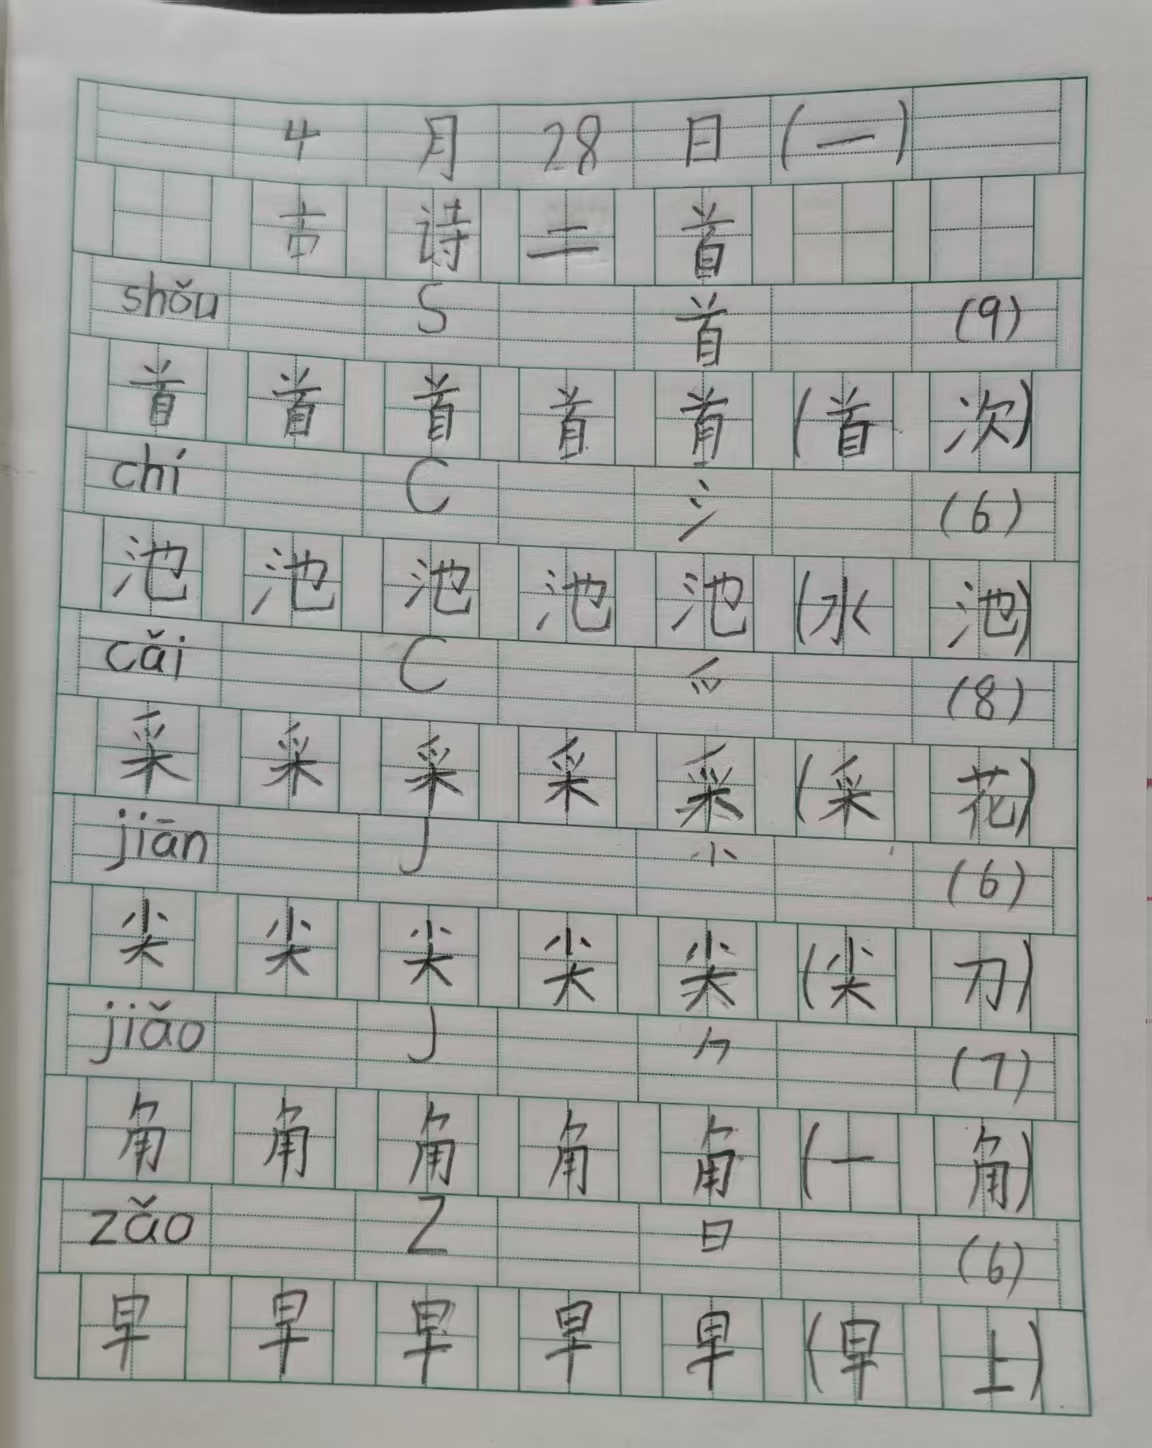 4月28日(一)
古诗二首
shǒu S 首 (9)
首 首 首 首 首 (首次)
chí C 氵 (6)
池 池 池 池 池 (水池)
cǎi C 爫 (8)
采 采 采 采 采 (采花)
jiān J 小 (6)
尖 尖 尖 尖 尖 (尖刀)
jiǎo J ⺈ (7)
角 角 角 角 角 (一角)
zǎo Z 日 (6)
早 早 早 早 早 (早上)